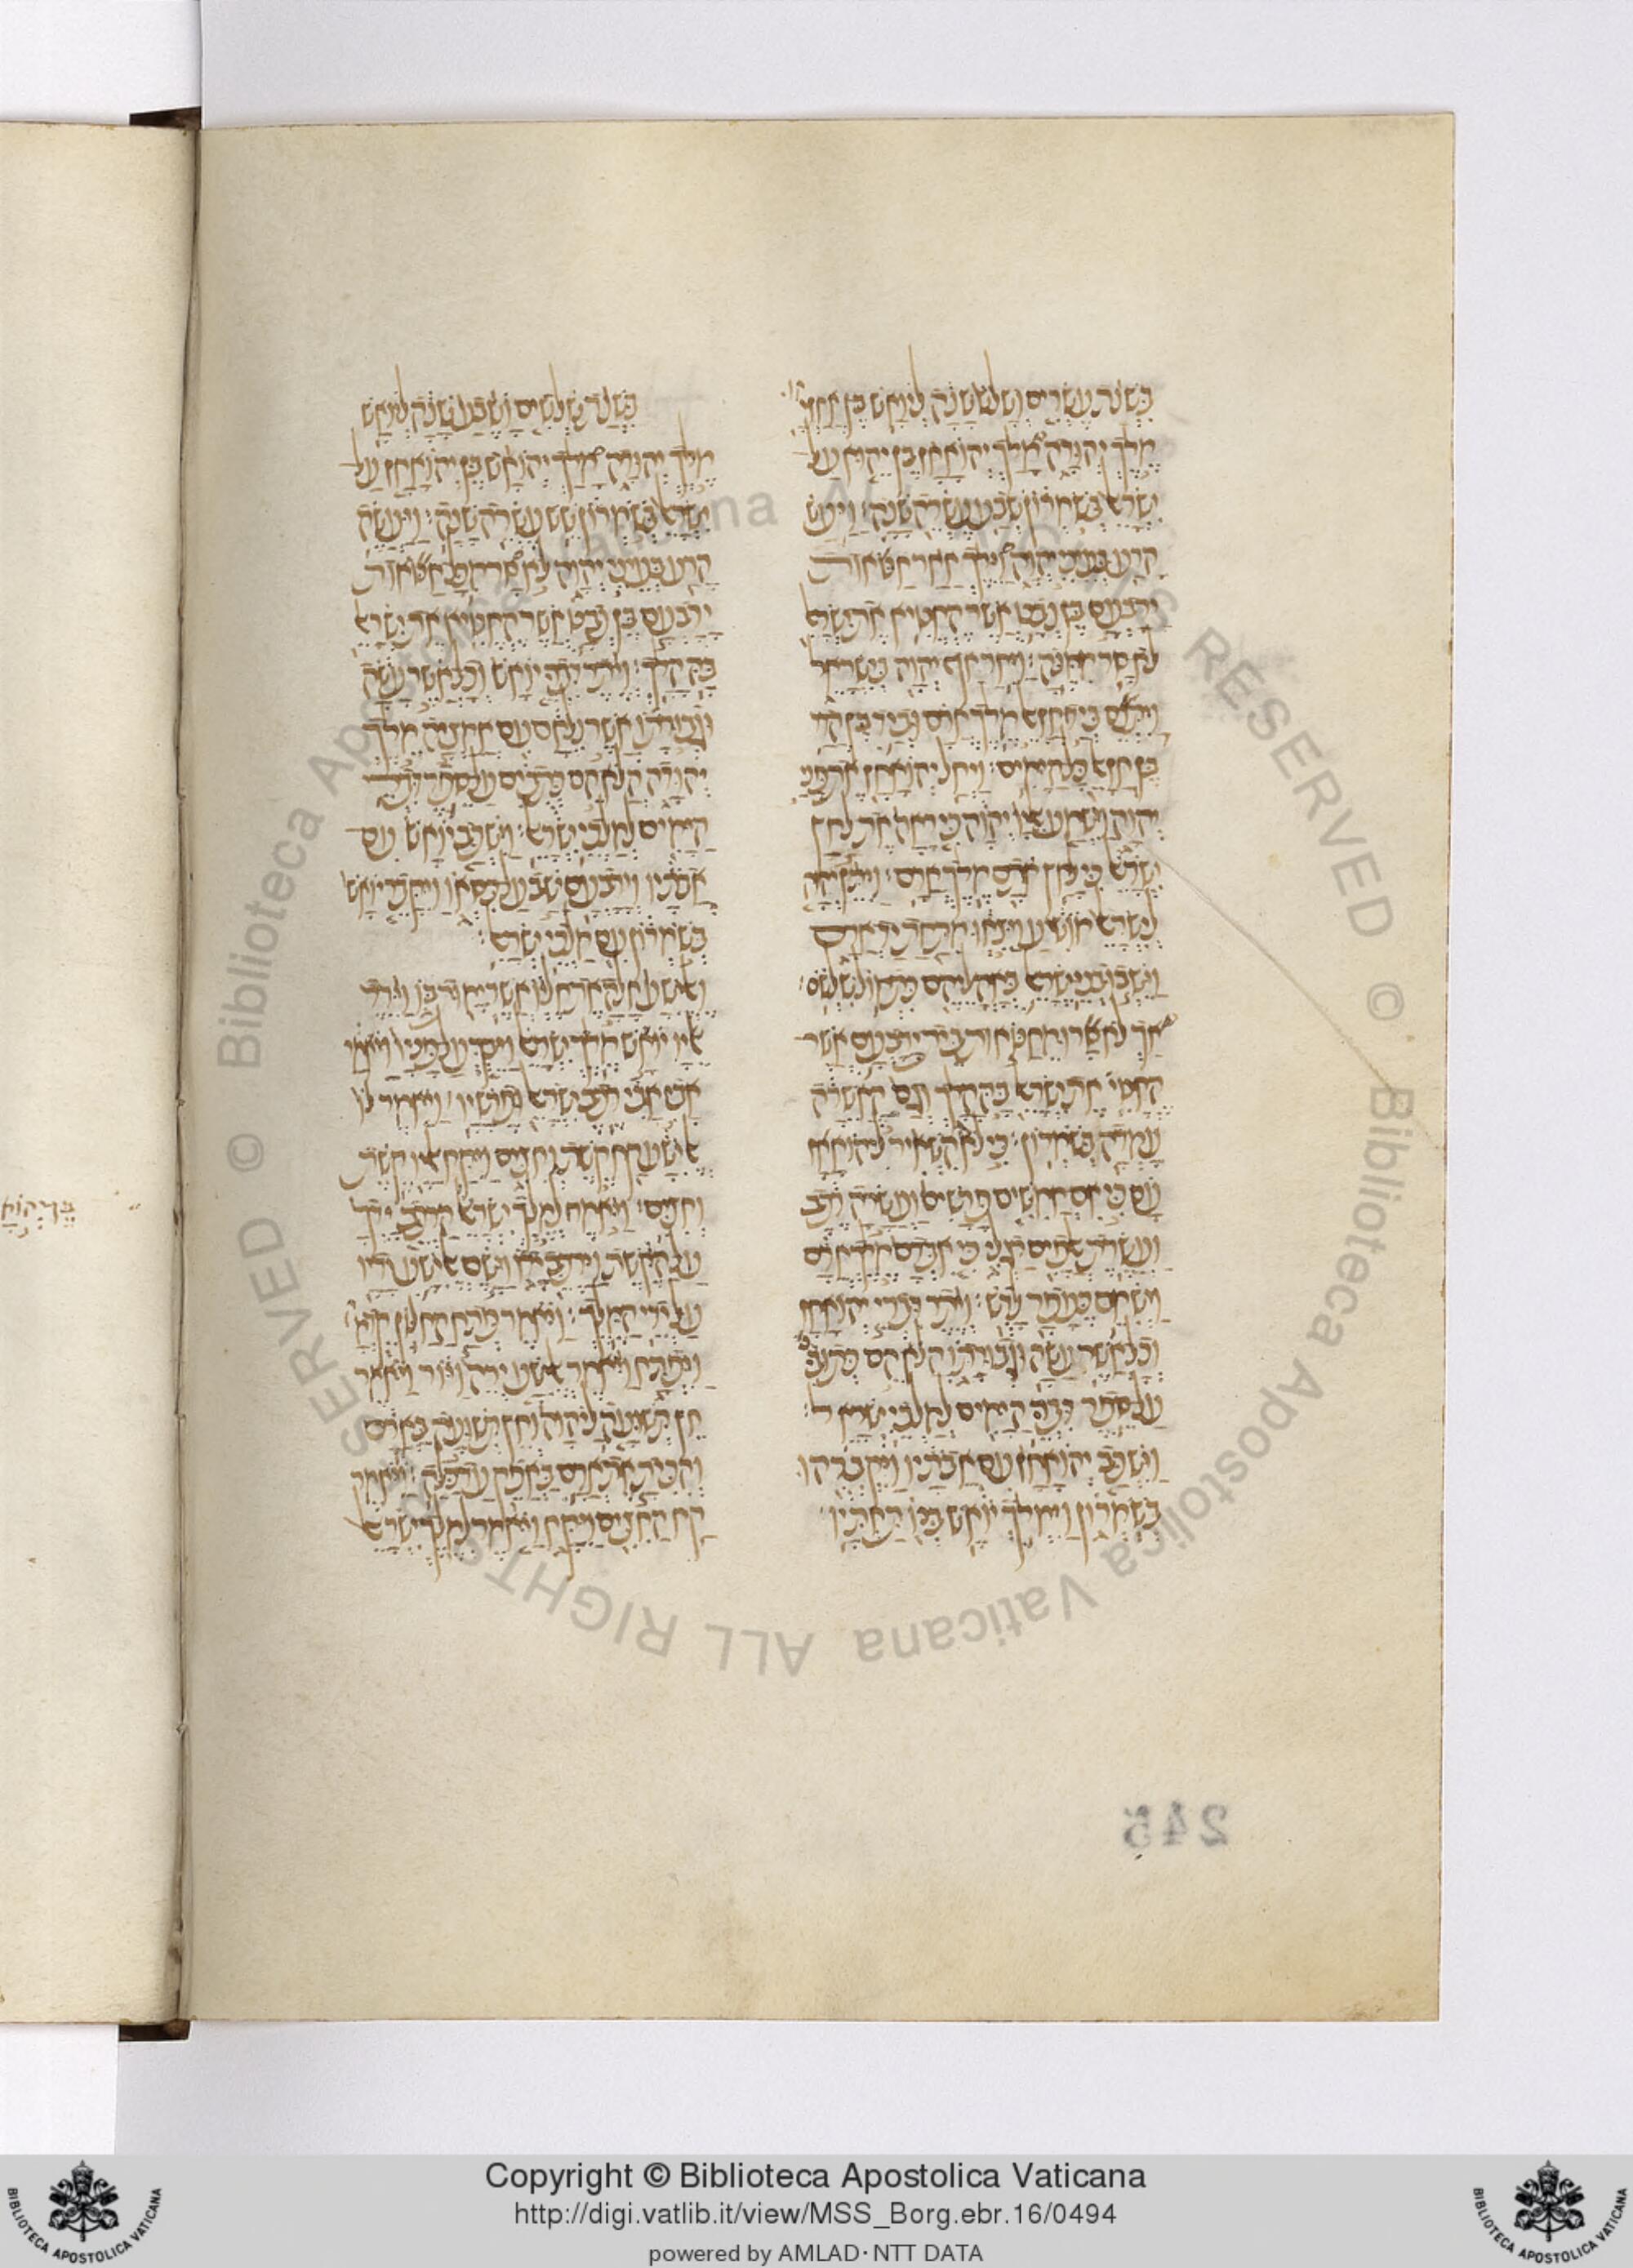 בשנת עשרים ושלש שנה ליואש בן אחזי
מלך יהודה מלך יהואחז בן יהוא על
ישראל בשמרון שבע עשרה שנה: ויעש
הרע בעיני יהוה וילך אחר חטאות
ירבעם בן נבט אשר החטיא את ישראל
לא סר ממנה: ויחר אף יהוה בישראל
ויתנם ביד חזאל מלך ארם וביד בן הדד
בן חזאל כל הימים: ויחל יהואחז את פני
יהוה וישמע אליו יהוה כי ראה את לחץ
ישראל כי לחץ אתם מלך ארם: ויתן יהוה
לישראל מושיע ויצאו מתחת יד ארם
וישבו בני ישראל באהליהם כתמול שלשום:
אך לא סרו מחטאות בית ירבעם אשר
החטי את ישראל בה הלך וגם האשרה
עמדה בשמרון: כי לא השאיר ליהואחז
עם כי אם חמשים פרשים ועשרה רכב
ועשרת אלפים רגלי כי אבדם מלך ארם
וישמם כעפר לדש: ויתר דברי יהואחז
וכל אשר עשה וגבורתו הלא הם כתובי
על ספר דברי הימים למלכי ישראל:
וישכב יהואחז עם אבתיו ויקברהו
בשמרון וימלך יואש בנו תחתיו:
בשנת שלשים ושבע שנה ליואש
מלך יהודה מלך יהואש בן יהואחז על
ישראל בשמרון שש עשרה שנה: ויעשה
הרע בעיני יהוה לא סר מכל חטאות
ירבעם בן נבט אשר החטיא את ישראל
בה הלך: ויתר דברי יואש וכל אשר עשה
וגבורתו אשר נלחם עם אמציה מלך
יהודה הלא הם כתובים על ספר דברי
הימים למלכי ישראל: וישכב יואש עם
אבתיו וירבעם ישב על כסאו ויקבר יואש
בשמרון עם מלכי ישראל:
ואלישע חלה את חליו אשר ימות בו וירד
אליו יואש מלך ישראל ויבך על פניו ויאמר
אבי אבי רכב ישראל ופרשיו: ויאמר לו
אלישע קח קשת וחצים ויקח אליו קשת
וחצים: ויאמר למלך ישראל הרכב ידך
על הקשת וירכב ידו וישם אלישע ידיו
על ידי המלך: ויאמר פתח החלון קדמה
ויפתח ויאמר אלישע ירה ויור ויאמר
חץ תשועה ליהוה וחץ תשועה בארם
והכית את ארם באפק עד כלה: ויאמר
קח החצים ויקח ויאמר למלך ישראל
245
Copyright © Biblioteca Apostolica Vaticana
http://digi.vatlib.it/view/MSS_Borg.ebr.16/0494
powered by AMLAD·NTT DATA